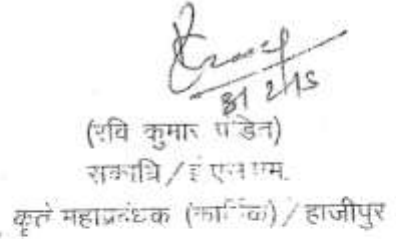 (रवि कुमार पांडेन)
सकाधि / ई एल एम.
कृते महाप्रबंधक (कार्मिक) / हाजीपुर